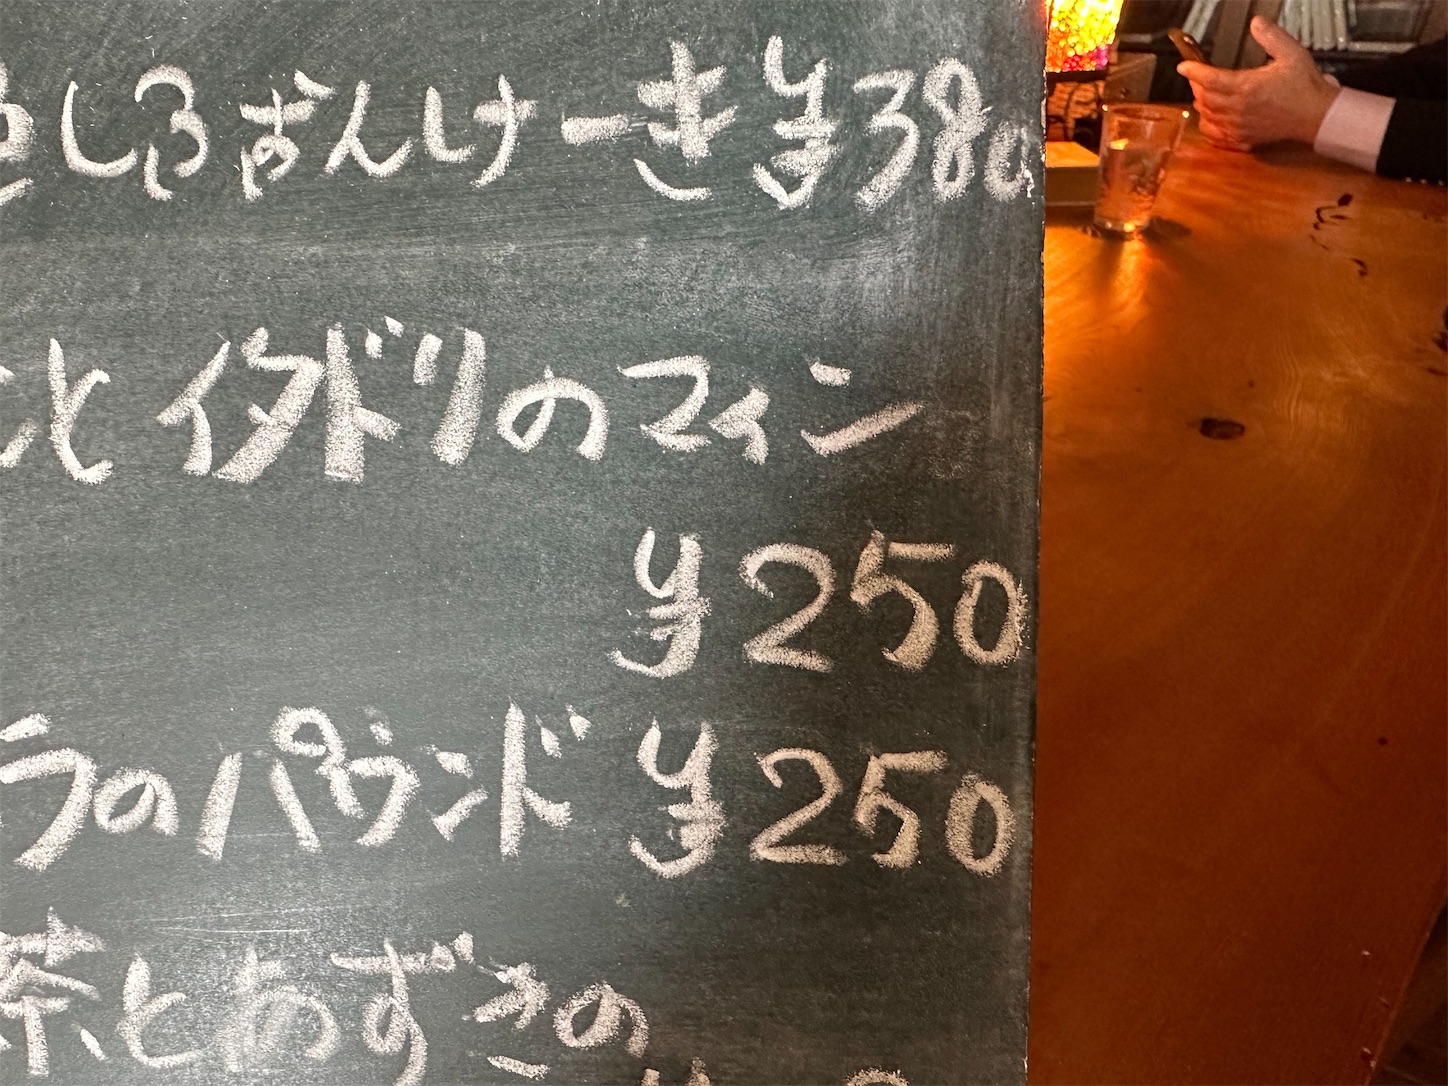 しろずんけーき ¥380
とイタドリのマフィン
¥250
ラのパウンド ¥250
茶とあずきの